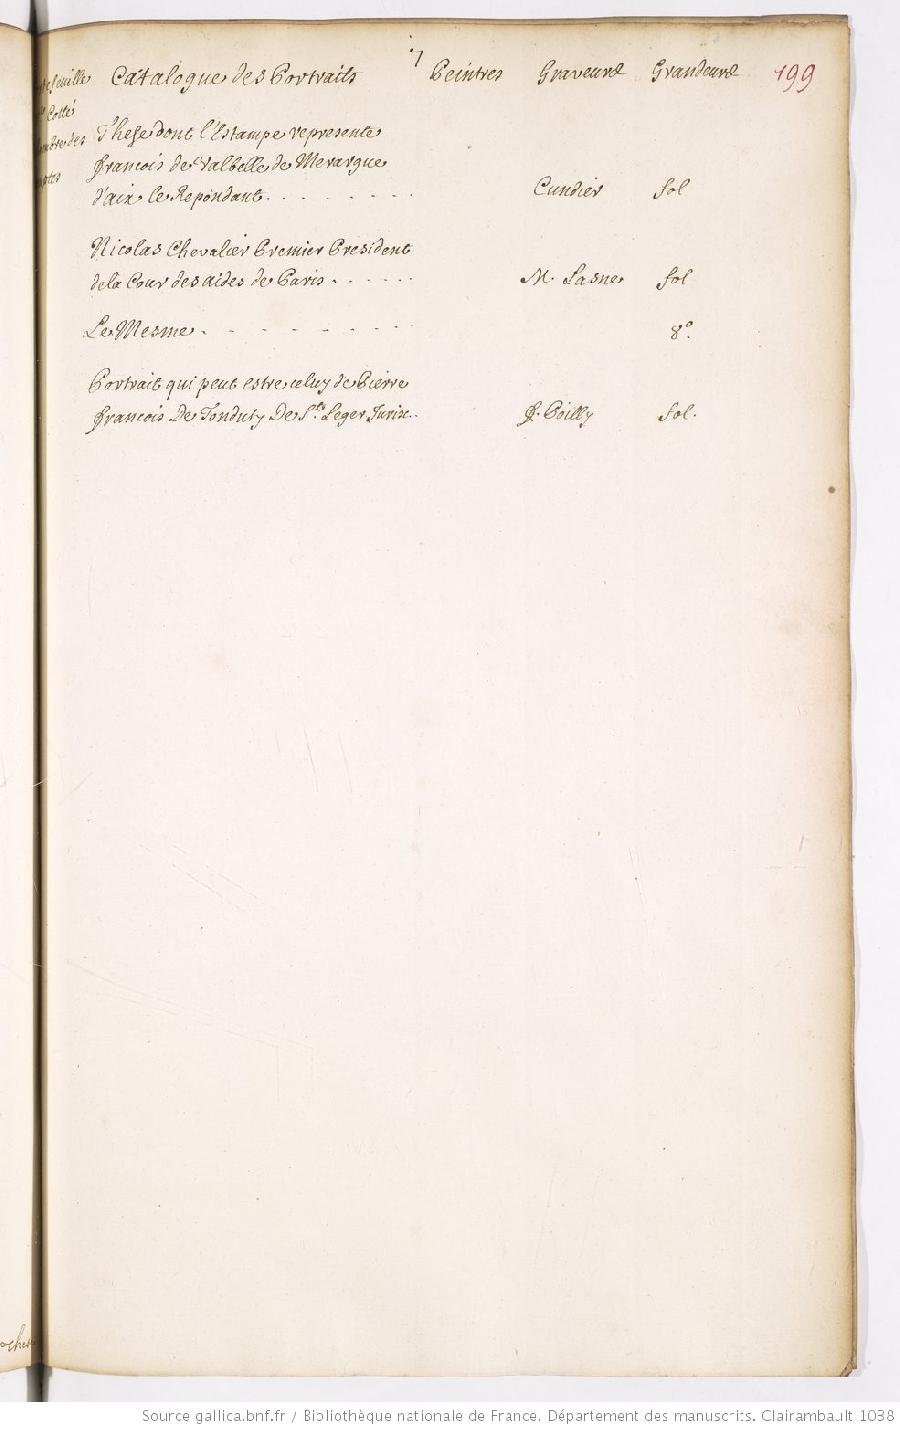 7
Catalogue des Portraits Peintres Graveurs Grandeurs 199
Cotté
These dont l'Estampe represente
francois de Valbelle de Merargue
d'aix le Repondant . . . . . . . . Cundier fol
Nicolas Chevalier Premier President
de la Cour des aides de Paris . . . . . M. Lasne fol
Le Mesme . . . . . . . . . 8º.
Portrait qui peut estre celuy de Pierre
francois De Tonduty De St. Leger Juris.. f. Poilly fol.
Source gallica.bnf.fr / Bibliothèque nationale de France. Département des manuscrits. Clairambault 1038